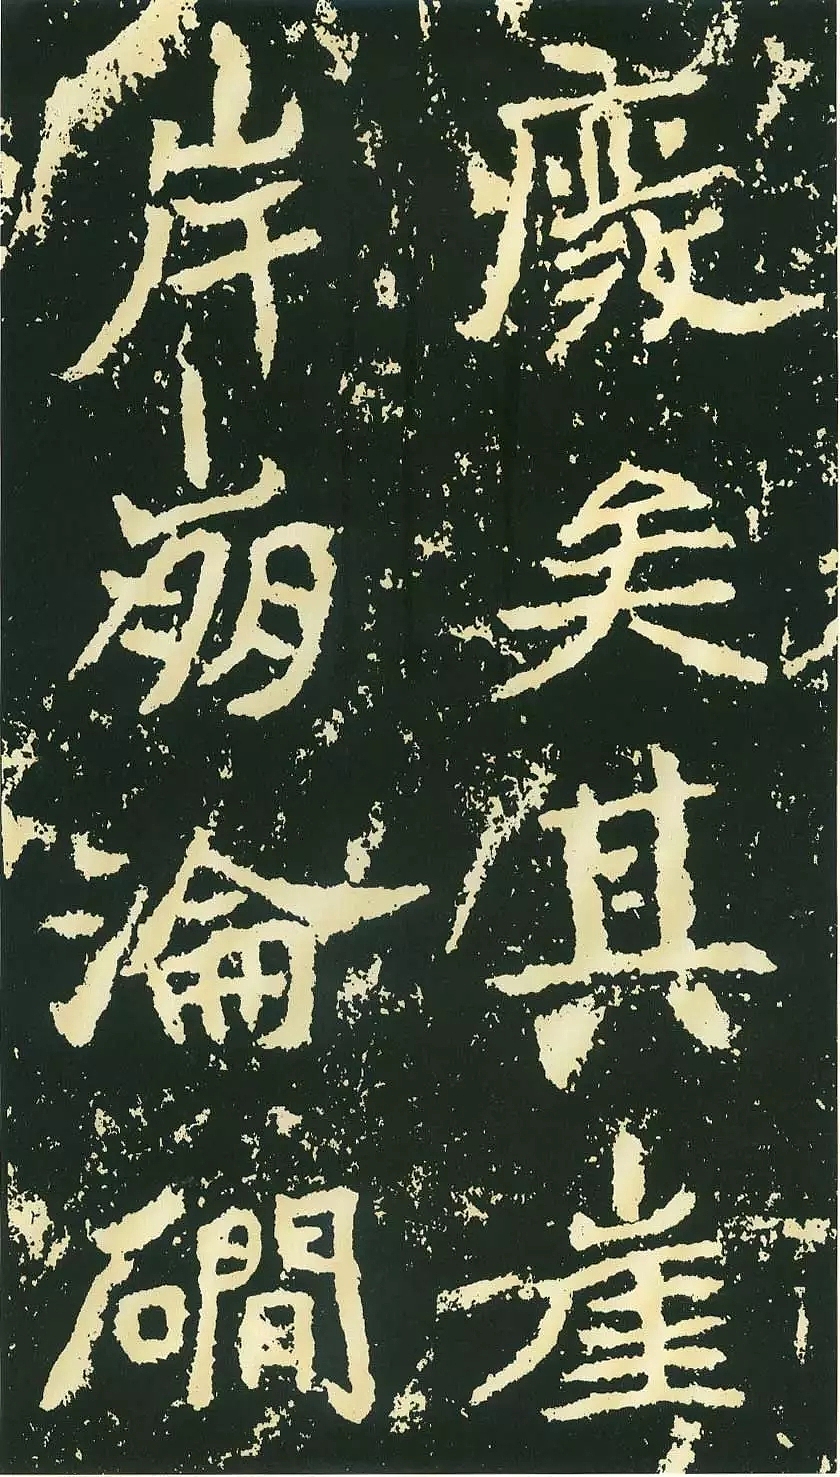 廢矣其崖
岸崩淪磵